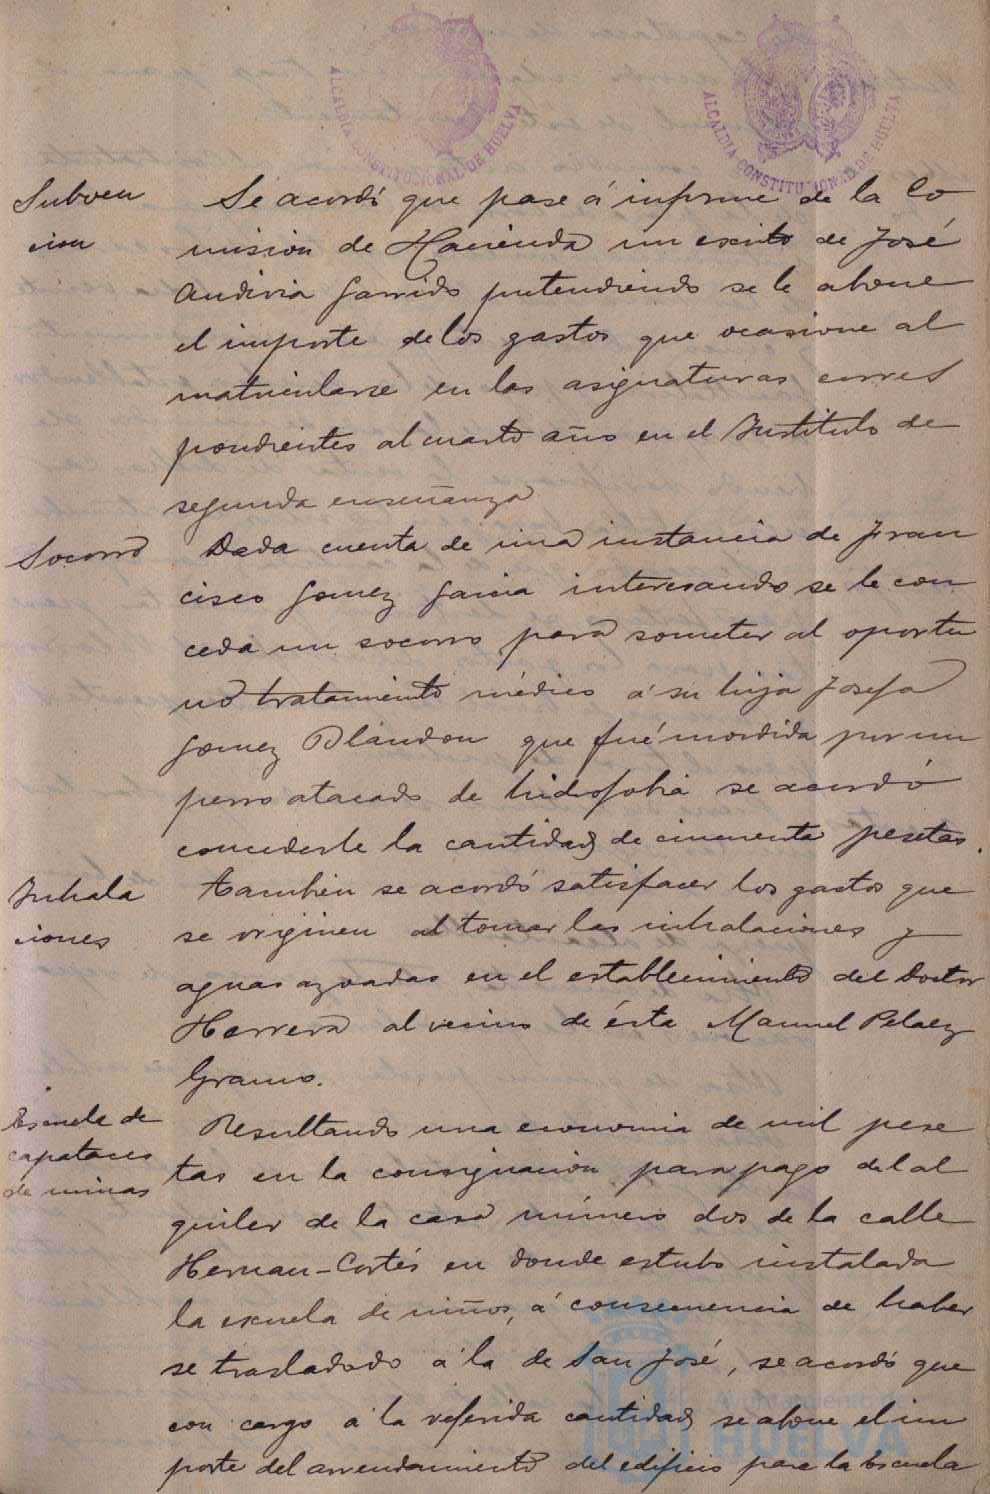 ALCALDIA CONSTITUCIONAL DE HUELVA
ALCALDIA CONSTITUCIONAL DE HUELVA
Subven
cion
Se acordó que pase á informe de la Co
mision de Hacienda un escrito de José
Andivia Garrido pretendiendo se le abone
el importe de los gastos que ocasione al
matricularse en las asignaturas corres
pondientes al cuarto año en el Instituto de
segunda enseñanza
Socorro
Dada cuenta de una instancia de Fran
cisco Gomez Garcia interesando se le con
ceda un socorro para someter al oportu
no tratamiento médico á su hija Josefa
Gomez Blandon que fué mordida por un
perro atacado de hidrofobia se acordó
concederle la cantidad de cincuenta pesetas.
Inhala
ciones
Tambien se acordó satisfacer los gastos que
se originen al tomar las inhalaciones y
aguas azoadas en el establecimiento del Doctor
Herrera al vecino de ésta Manuel Pelaez
Escuela de
capataces
de minas
Resultando una economia de mil pese
tas en la consignación para pago del al
quiler de la casa número dos de la calle
Hernan-Cortés en donde estubo instalada
la escuela de niños, á consecuencia de haber
se trasladado á la de San José, se acordó que
con cargo á la referida cantidad se abone el im
porte del arrendamiento del edificio para la Escuela
Ayuntamiento de
HUELVA